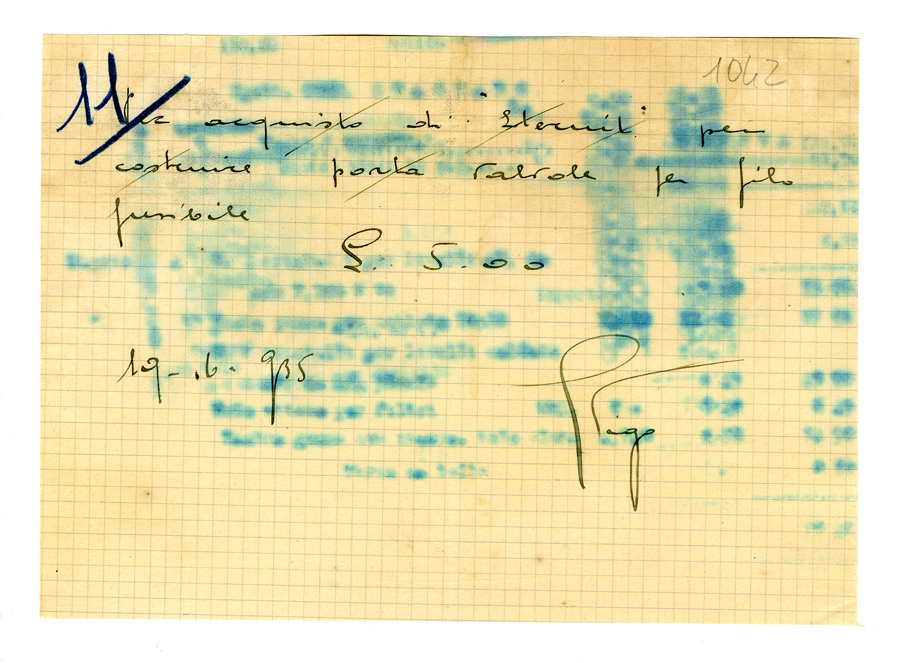 1042
11
Per acquisto di "Eternit" per
costruire porta valvole per filo
fusibile
L. 5.00
19-.6.935
Rigo